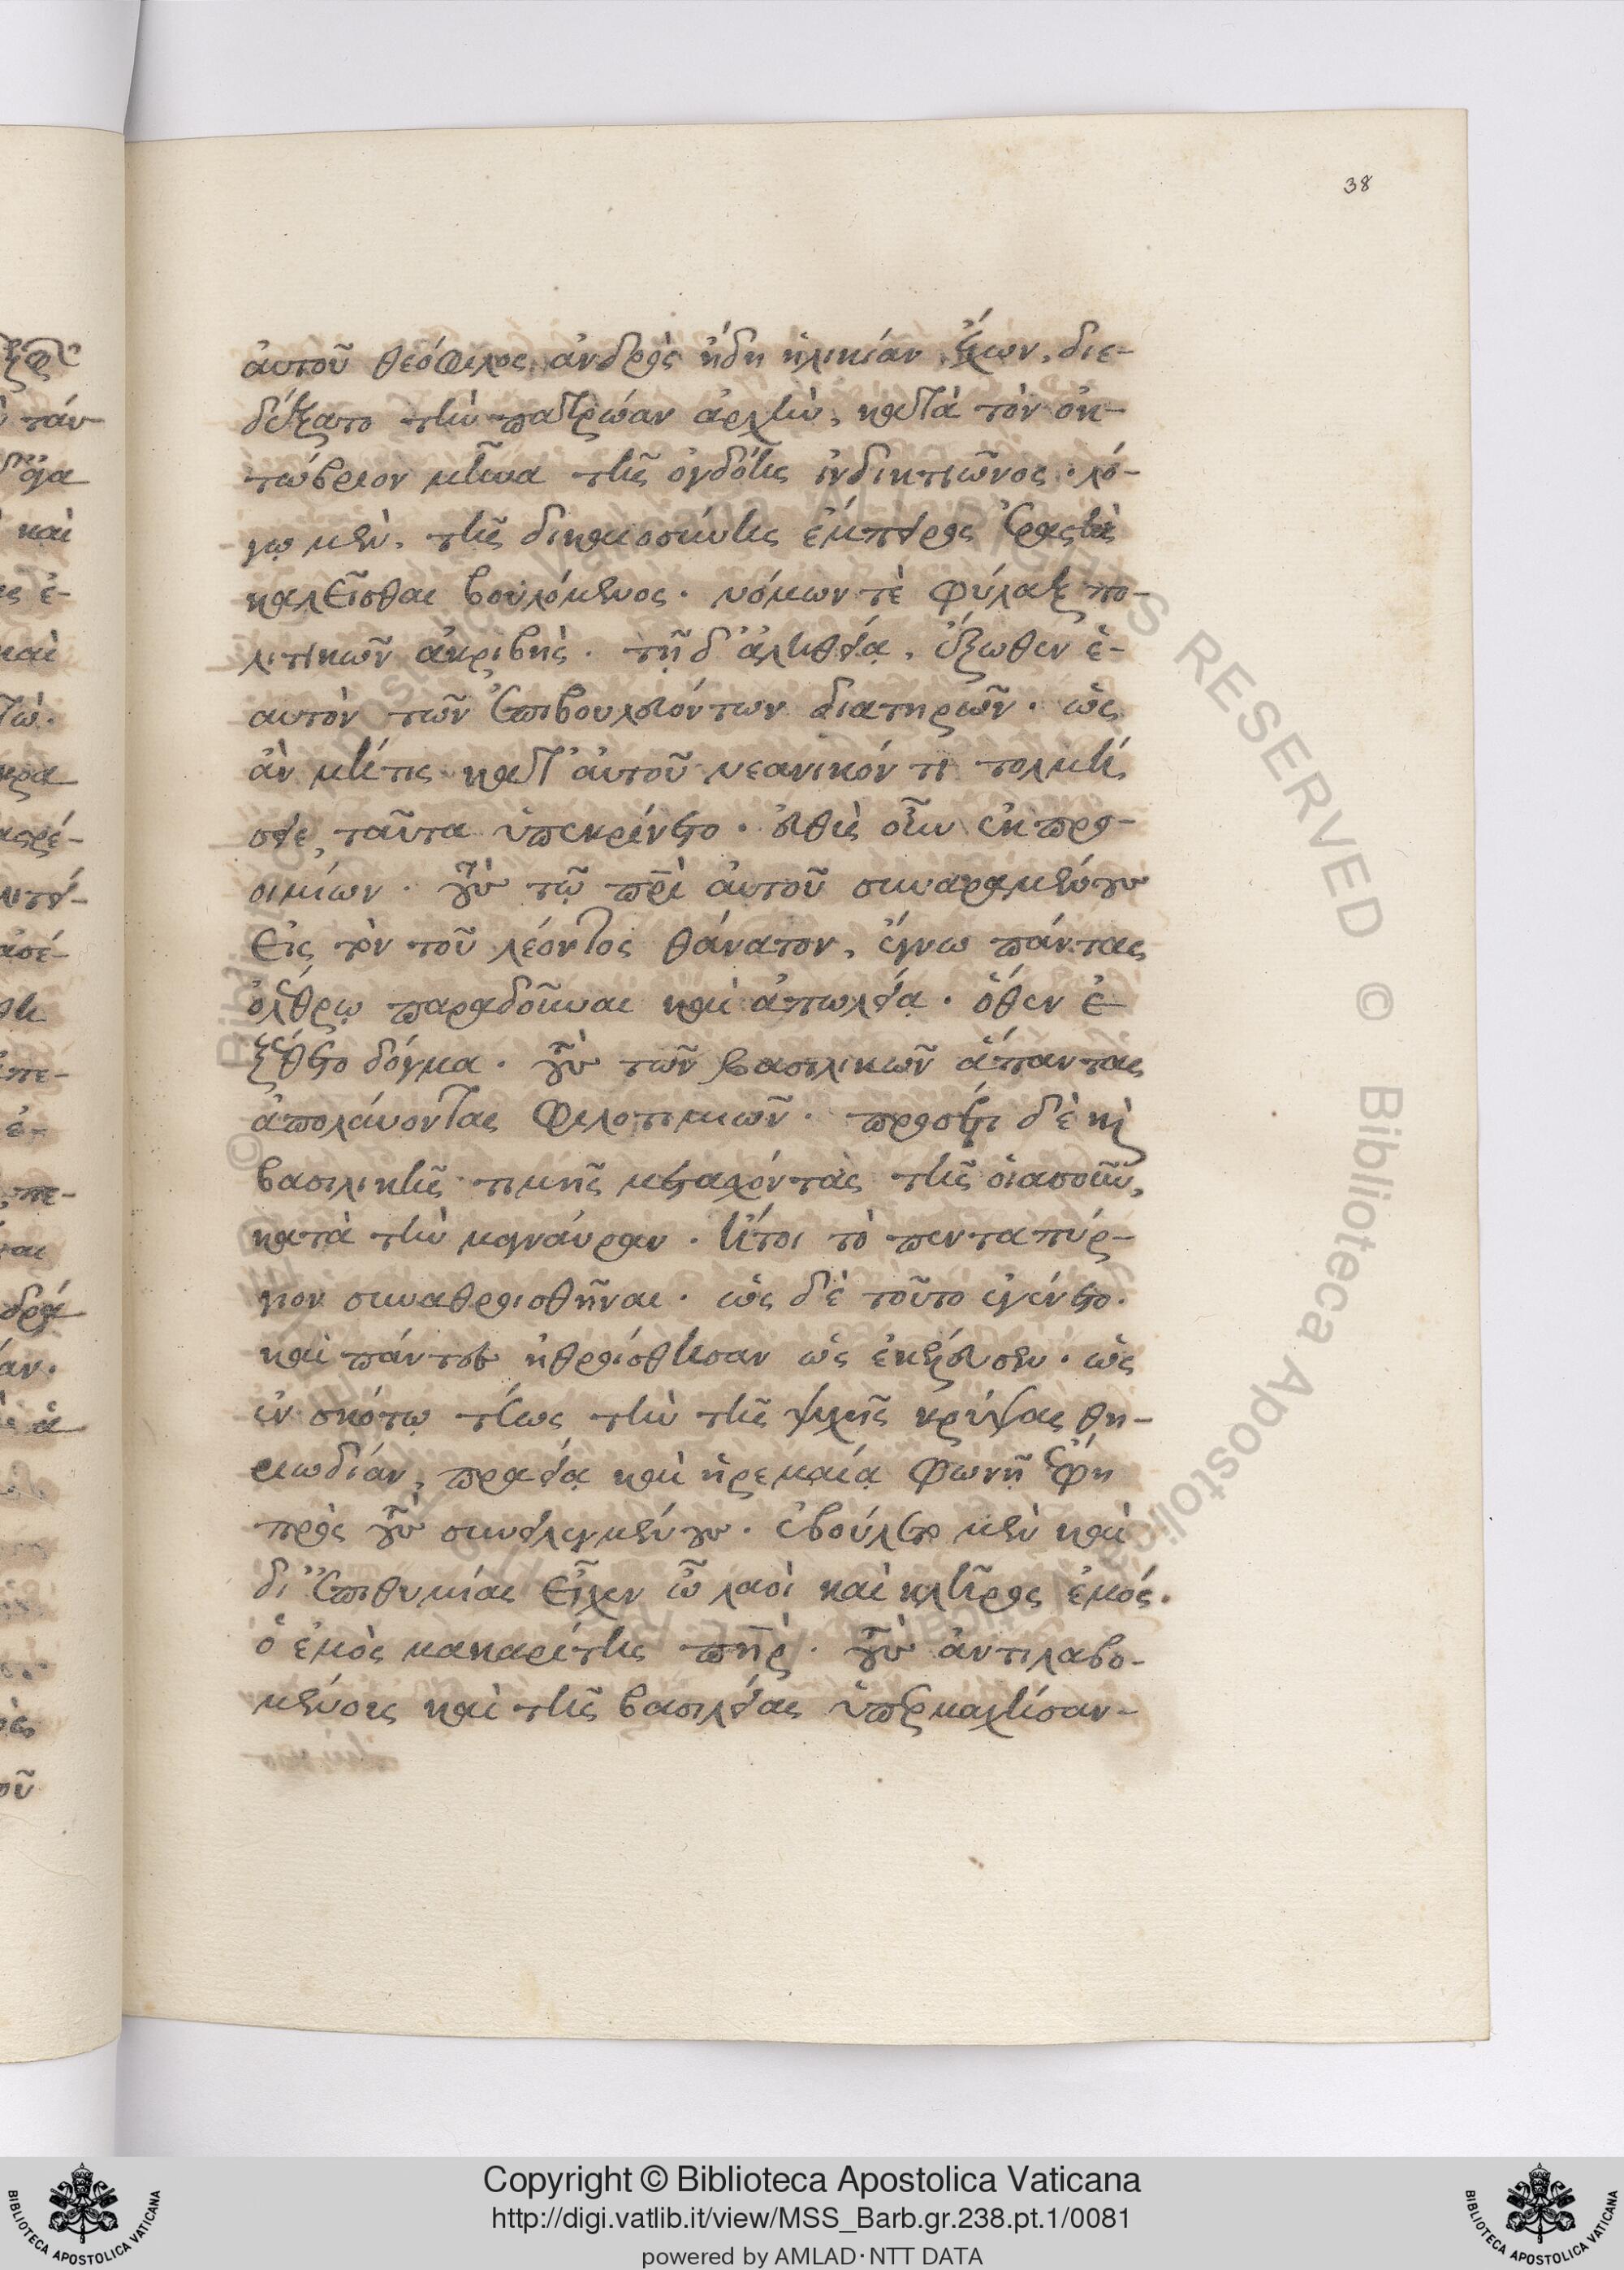 38
αὐτοῦ θεόφιλος ἀνδρὸς ἤδη ἡλικίαν ἔχων, διε-
δέξατο τὴν πατρώαν ἀρχὴν, κατὰ τὸν ὀκ-
τώβριον μῆνα τῆς ὀγδόης ἰνδικτιῶνος. λό-
γῳ μὲν, τῆς δικαιοσύνης ἔμπυρος ἐραστὴς
καλεῖσθαι βουλόμενος. νόμων τὲ φύλαξ πο-
λιτικῶν ἀκριβὴς. τῇ δ' ἀληθείᾳ, ἔξωθεν ἑ-
αυτὸν τῶν ἐπιβουλευόντων διατηρῶν. ὡς
ἂν μήτις κατ' αὐτοῦ νεανικόν τι τολμή-
σειε, ταῦτα ὑπεκρίνετο. εὐθὺς οὖν ἐκ προ-
οιμίων. τοὺς τῷ πρὶ αὐτοῦ συναραμένους
εἰς τὸν τοῦ λέοντος θάνατον, ἔγνω πάντας
ὀλέθρῳ παραδοῦναι καὶ ἀπωλείᾳ. ὅθεν ἐ-
ξέθετο δόγμα. τοὺς τῶν βασιλικῶν ἅπαντας
ἀπολαύοντας φιλοτιμιῶν. προσέτι δὲ κὶ
βασιλικῆς τιμῆς μετασχόντας τῆς οἱασοῦν,
κατὰ τὴν μαγναύραν. ἤτοι τὸ πενταπύρ-
γιον συναθροισθῆναι. ὡς δὲ τοῦτο ἐγένετο.
καὶ πάντες ἠθροίσθησαν ὡς ἐκέλευσεν. ὡς
ἐν σκότῳ τέως τὴν τῆς ψυχῆς κρύψας θη-
ριωδίαν, πραείᾳ καὶ ἠρεμαίᾳ φωνῇ ἔφη
πρὸς τοὺς συνειλεγμένους. ἐβούλετο μὲν καὶ
δι' ἐπιθυμίας εἶχεν ὦ λαὸς καὶ κλῆρος ἐμός.
ὁ ἐμὸς μακαρίτης πηρ. τοὺς ἀντιλαβο-
μένους καὶ τῆς βασιλείας ὑπερμαχήσαν-
Copyright © Biblioteca Apostolica Vaticana
http://digi.vatlib.it/view/MSS_Barb.gr.238.pt.1/0081
powered by AMLAD·NTT DATA
BIBLIOTECA APOSTOLICA VATICANA
BIBLIOTECA APOSTOLICA VATICANA